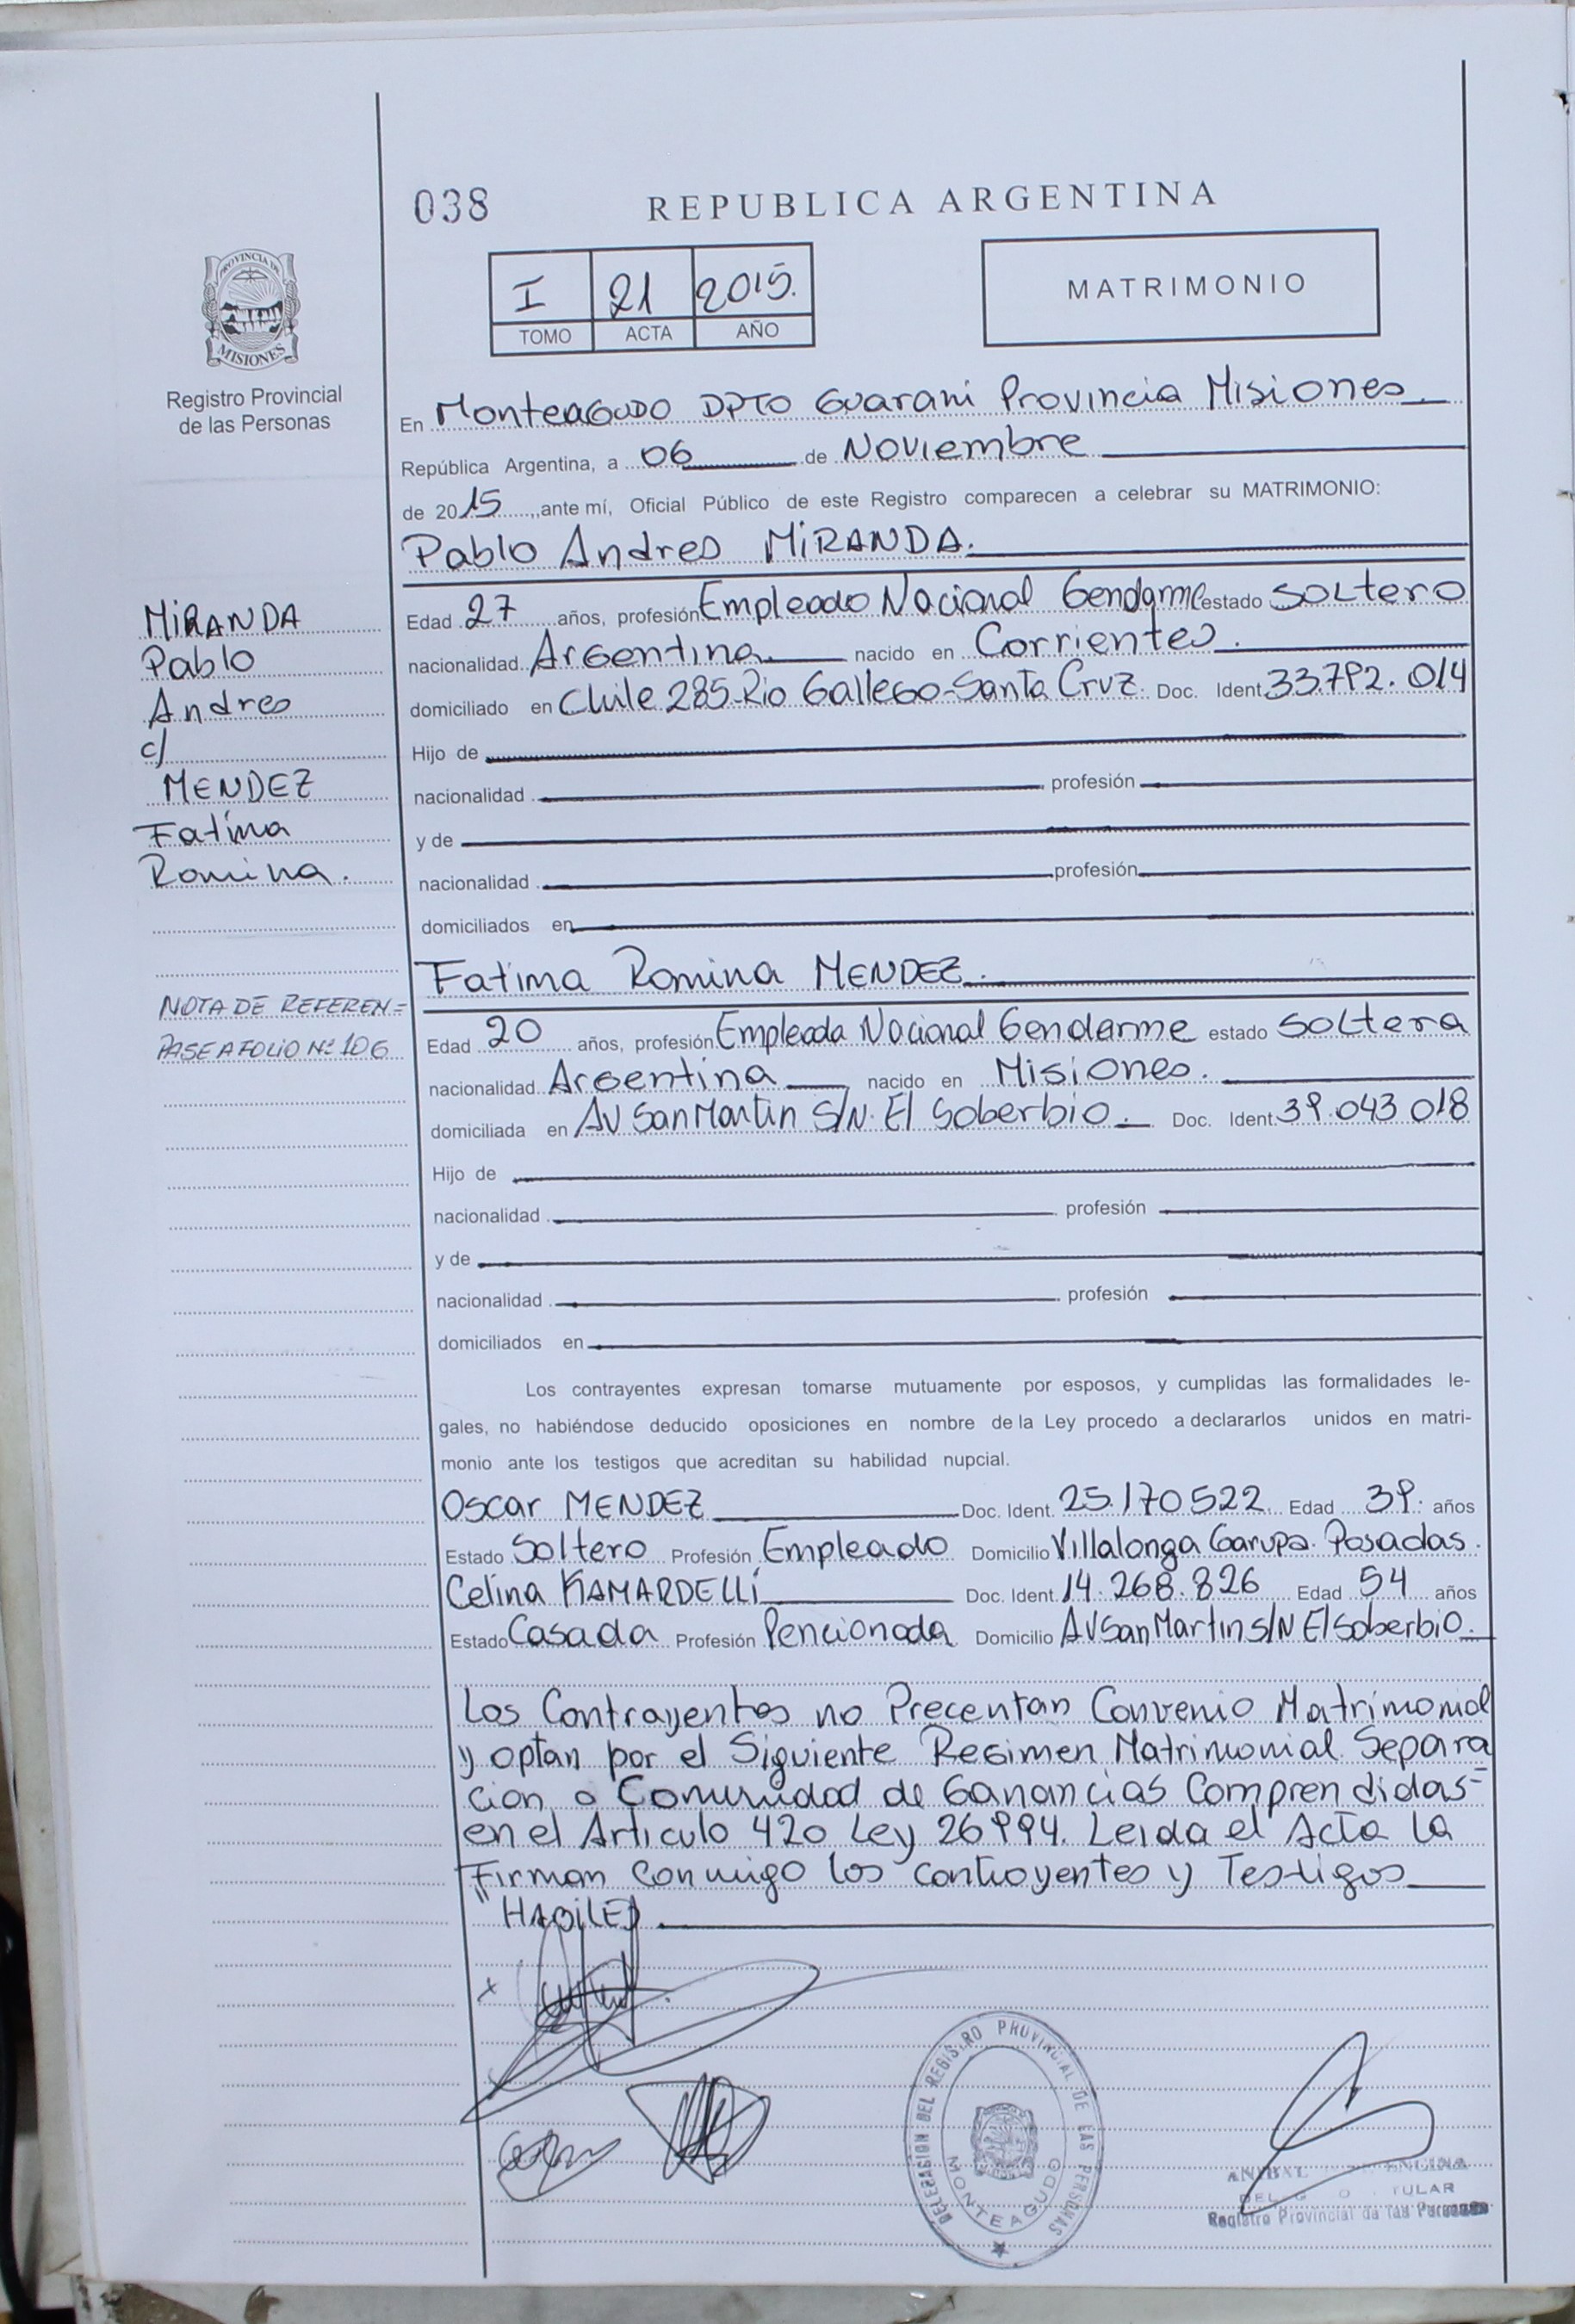 038
REPUBLICA ARGENTINA
I 21 2015.
TOMO ACTA AÑO
MATRIMONIO
PROVINCIA DE
MISIONES
Registro Provincial
de las Personas
En Monteagudo DPTO Guarani Provincia Misiones
República Argentina, a 06 de Noviembre
de 2015, ante mí, Oficial Público de este Registro comparecen a celebrar su MATRIMONIO:
Pablo Andres MIRANDA.
Edad 27 años, profesión Empleado Nacional Gendarme estado Soltero
nacionalidad Argentina nacido en Corrientes.
domiciliado en Chile 285-Rio Gallego-Santa Cruz. Doc. Ident. 33.792.014
Hijo de
nacionalidad profesión
y de
nacionalidad profesión
domiciliados en
MIRANDA
Pablo
Andres
c/
MENDEZ
Fatima
Romina.
NOTA DE REFEREN=
PASE A FOLIO Nº 106
Fatima Romina MENDEZ.
Edad 20 años, profesión Empleada Nacional Gendarme estado Soltera
nacionalidad Argentina nacido en Misiones.
domiciliada en AV San Martin S/N. El Soberbio. Doc. Ident. 39.043.018
Hijo de
nacionalidad profesión
y de
nacionalidad profesión
domiciliados en
Los contrayentes expresan tomarse mutuamente por esposos, y cumplidas las formalidades le-
gales, no habiéndose deducido oposiciones en nombre de la Ley procedo a declararlos unidos en matri-
monio ante los testigos que acreditan su habilidad nupcial.
Oscar MENDEZ Doc. Ident. 25.170.522 Edad 39. años
Estado Soltero Profesión Empleado Domicilio Villalonga Garupa. Posadas.
Celina KAMARDELLI Doc. Ident. 14.268.826 Edad 54 años
Estado Casada Profesión Pencionada Domicilio AV San Martin S/N El Soberbio.
Los Contrayentes no Precentan Convenio Matrimonial
y optan por el Siguiente Regimen Matrimonial Separa
cion o Comunidad de Ganancias Comprendidas=
en el Articulo 420 Ley 26994. Leida el Acta la
Firman conmigo los contrayentes y Testigos
HABILES
DELEGACION DEL REGISTRO PROVINCIAL DE LAS PERSONAS
MONTEAGUDO
ANIBAL
TULAR
Registro Provincial de las Personas